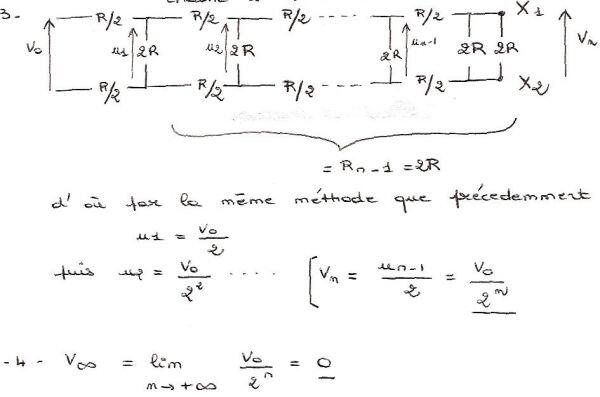 3-
R/2 R/2 R/2 R/2 X1
V0 u1 2R u2 2R 2R un-1 2R 2R Vn
R/2 R/2 R/2 R/2 X2
= Rn-1 = 2R
d'où par la même méthode que précedemment
u1 = V0/2
puis u2 = V0/2² .... Vn = un-1/2 = V0/2ⁿ
-4- V∞ = lim V0/2ⁿ = 0
n→+∞